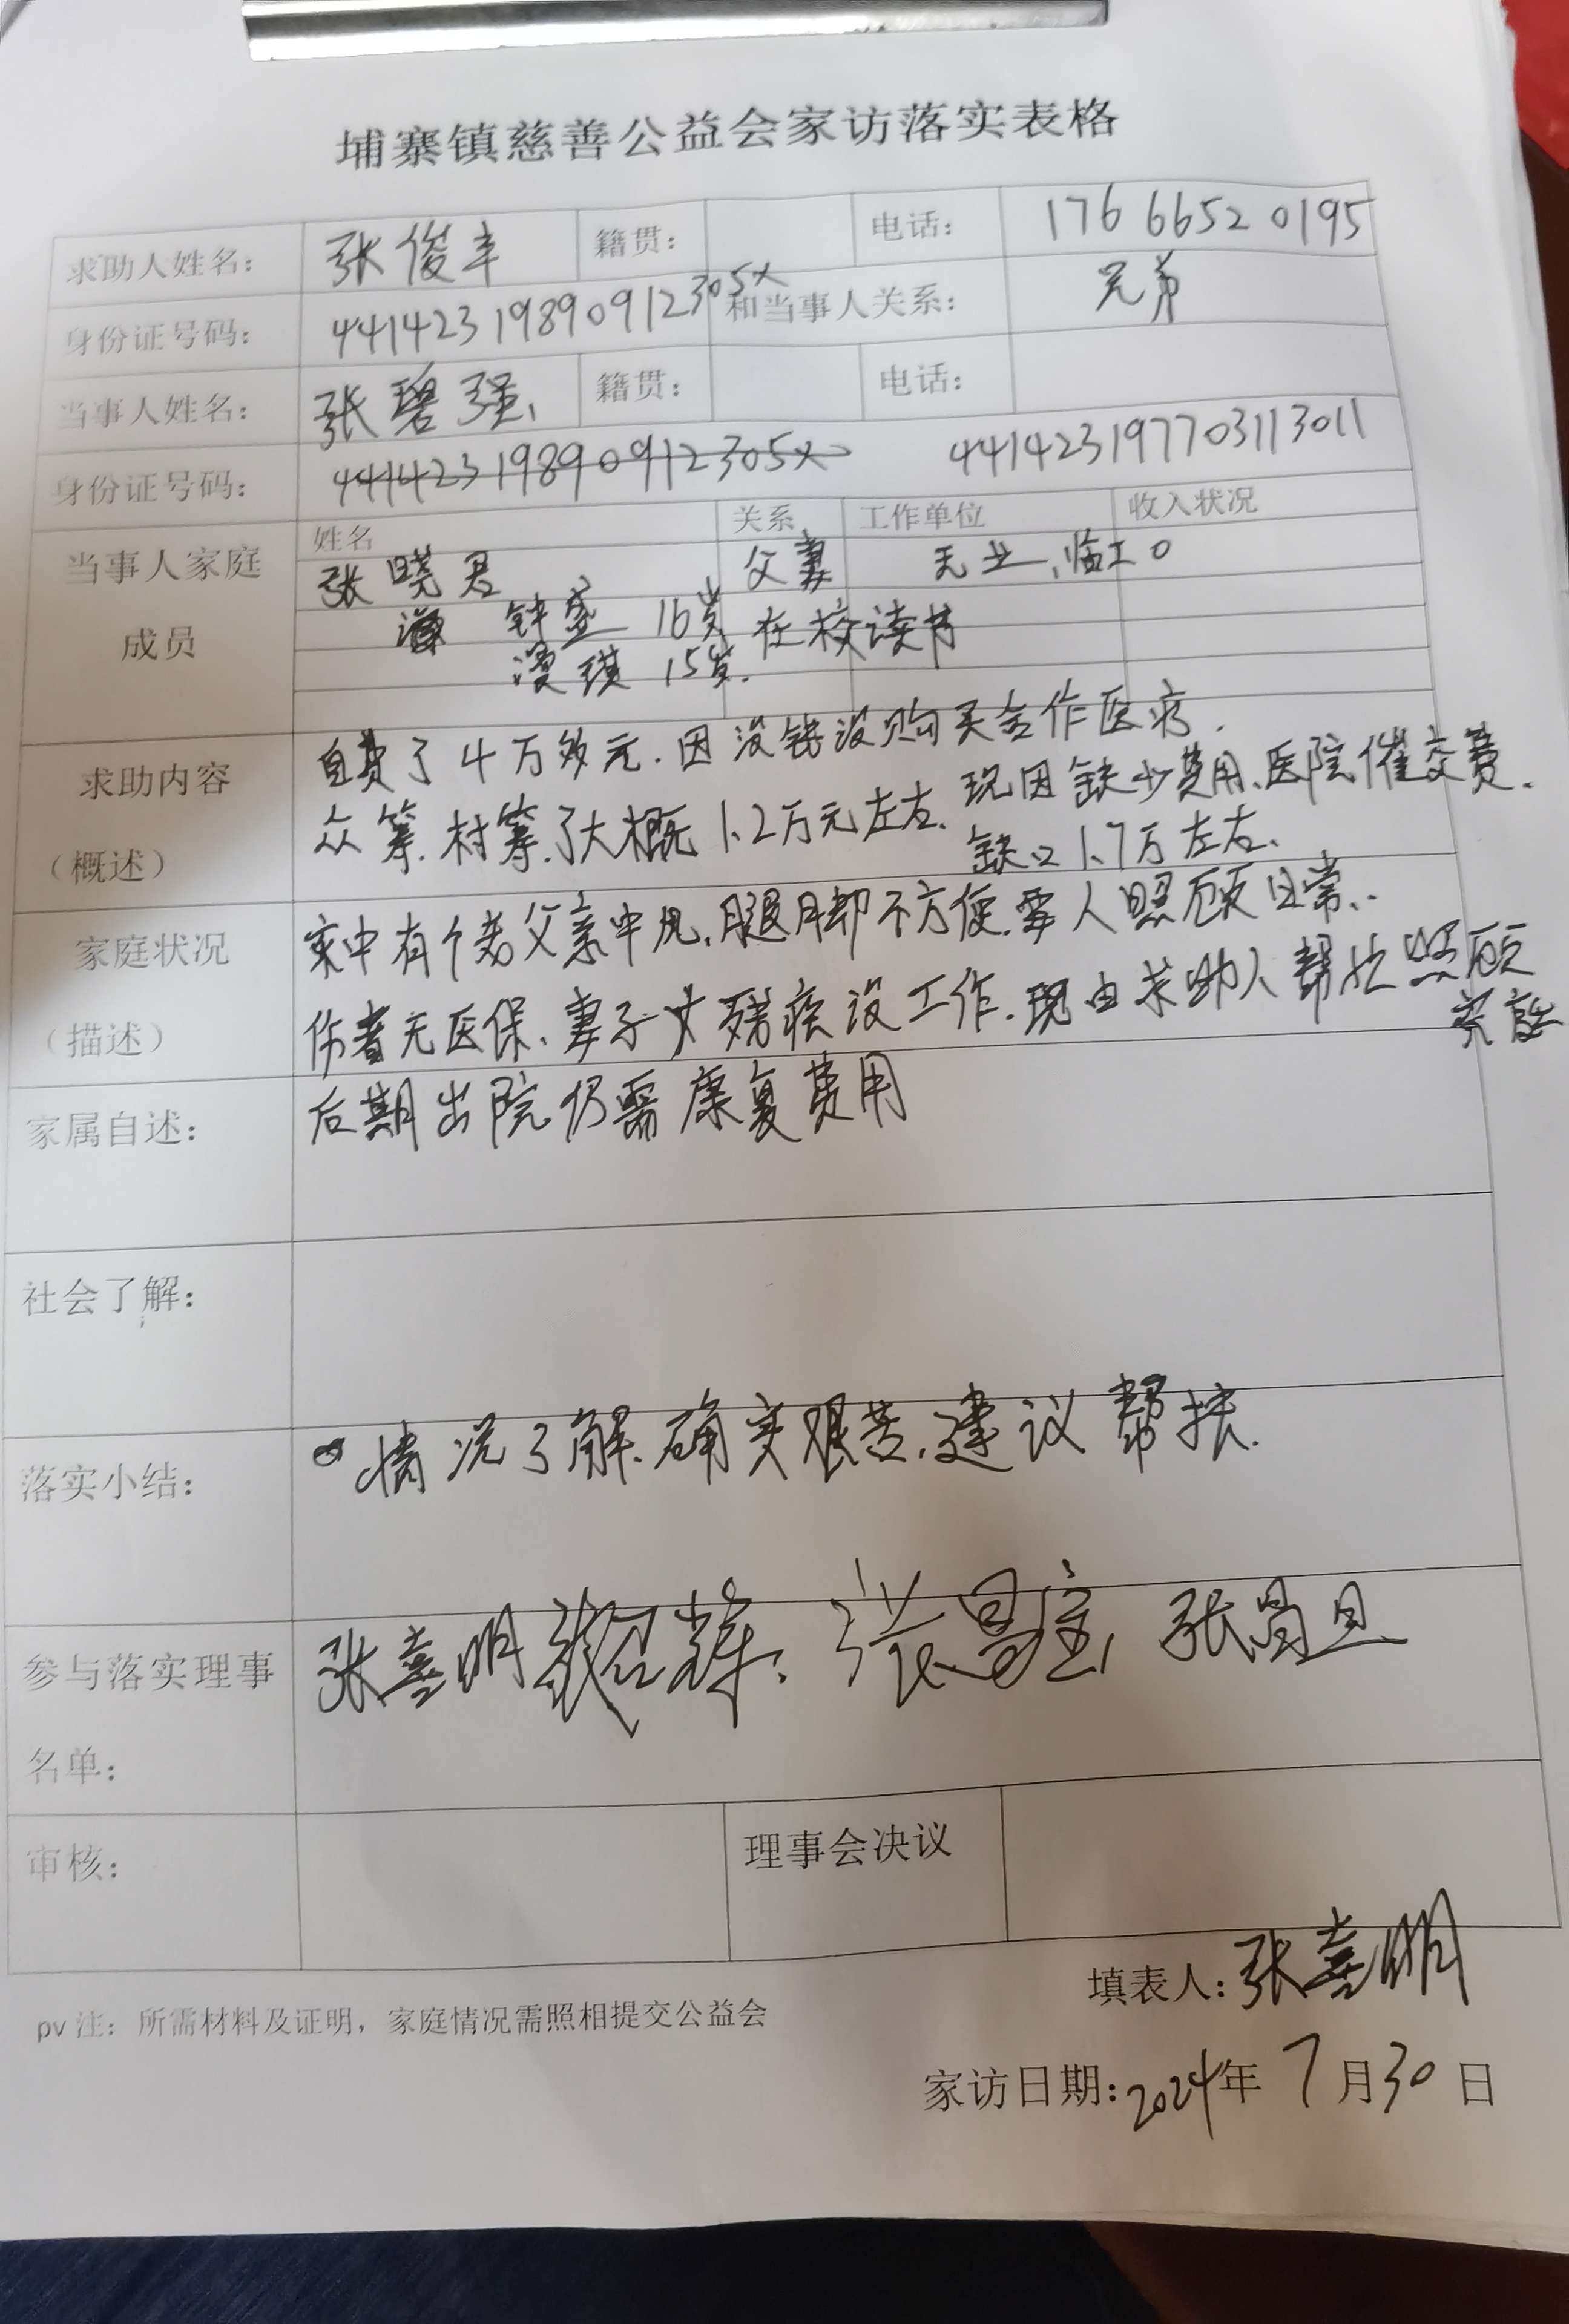 埔寨镇慈善公益会家访落实表格
求助人姓名： 张俊丰 籍贯： 电话： 176 6652 0195
身份证号码： 44142319890912305X 和当事人关系： 兄弟
当事人姓名： 张碧强 籍贯： 电话：
身份证号码： 44142319890912305X 441423197703113011
当事人家庭成员 姓名 关系 工作单位 收入状况
张晓君 父妻 无业、临工 0
钟盛 16岁 在校读书
漫琪 15岁.
求助内容（概述）
自费了4万多元.因没钱没购买合作医疗.
众筹.村筹.了大概1.2万元左右.现因缺少费用、医院催交费.
缺口1.7万左右.
家庭状况（描述）
家中有个老父亲中风,腿脚不方便.要人照顾日常..
伤者无医保、妻子 残疾没工作.现由求助人帮忙照顾
家庭
家属自述： 后期出院仍需康复费用
社会了解：
落实小结： 情况了解.确实艰苦,建议帮扶.
参与落实理事名单： 张喜明 张 辉. 张昌 张昌旦
审核： 理事会决议
填表人：张喜明
pv注：所需材料及证明，家庭情况需照相提交公益会
家访日期：2024年7月30日